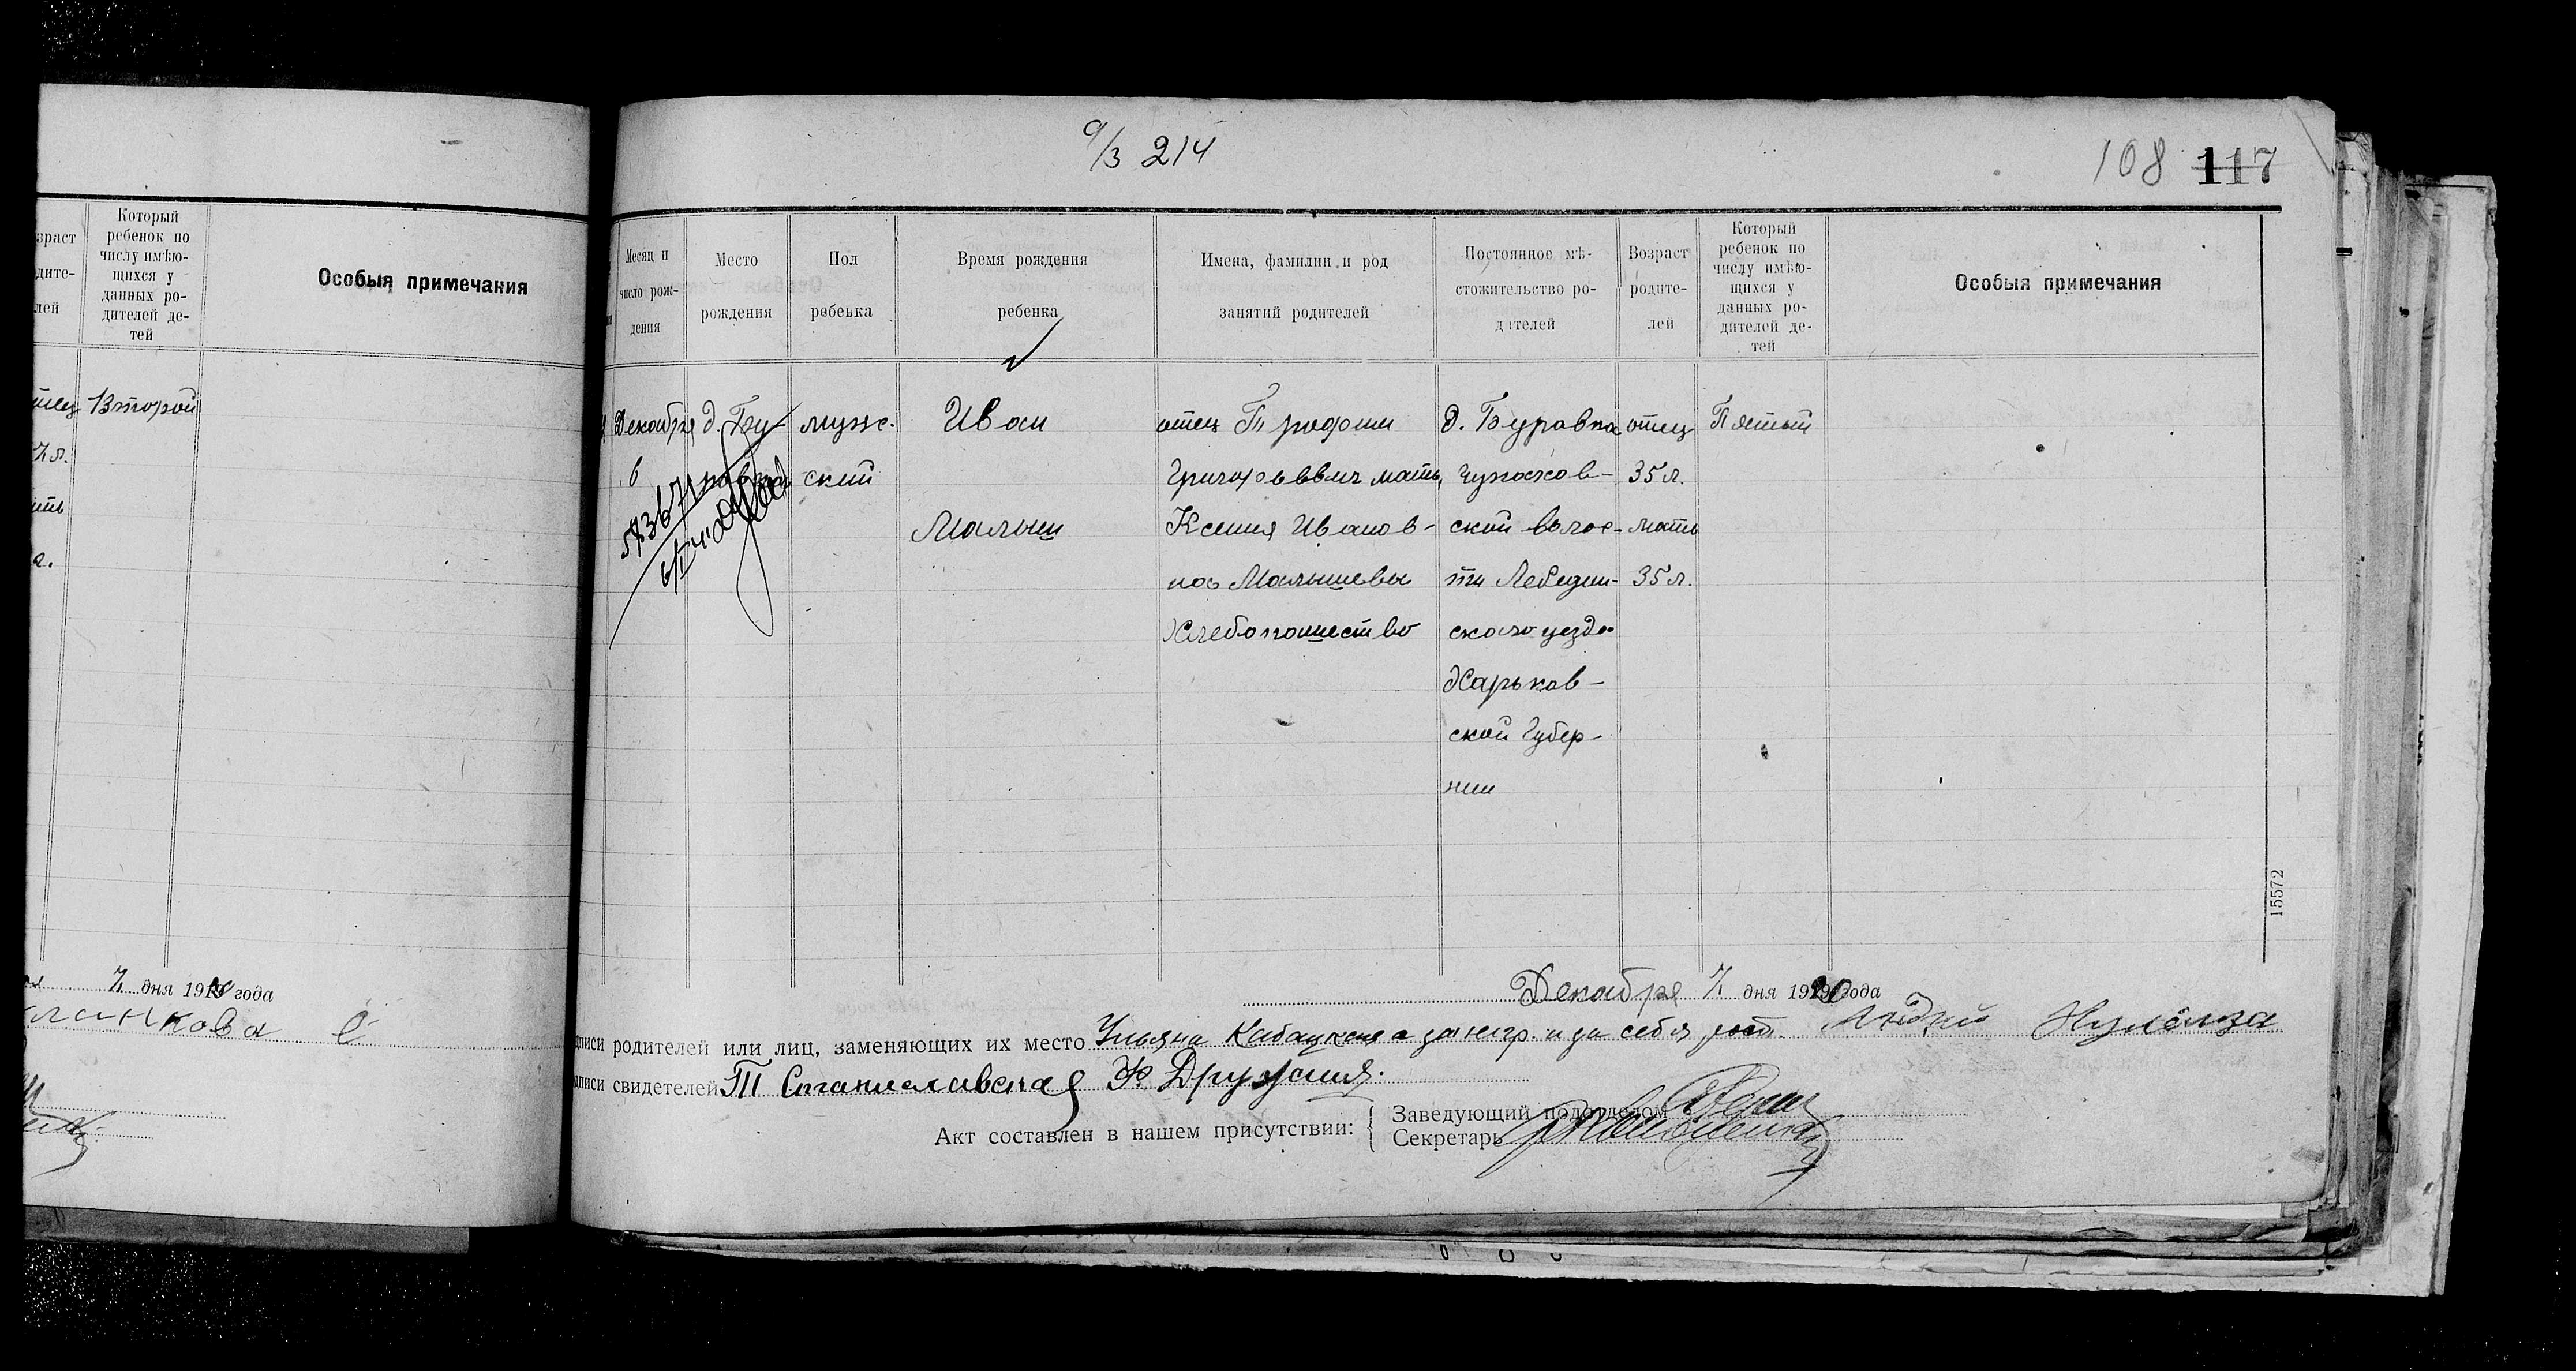 9/3 214
108 117
зраст
дите-
лей
Который
ребенок по
числу имѣю-
щихся у
данных ро-
дителей де-
тей
Особыя примечания
Второй
7 дня 19 года
Месяц и
число рож-
дения
Место
рождения
Пол
ребенка
Время рождения
ребенка
Имена, фамилии и род
занятий родителей
Постоянное мѣ-
стожительство ро-
дителей
Возраст
родите-
лей
Который
ребенок по
числу имѣю-
щихся у
данных ро-
дителей де-
тей
Особыя примечания
Декабря
6
д. Бу-
муже-
ский
Иван
Малыш
отец Трофим
Григорьевич мать
Ксения Иванов-
на Малышевы
Хлебопашество
д. Буравка
ской волос-
ти Лебедин-
ского уезда
Харьков-
ской Губер-
нии
отец
35 л.
мать
35 л.
Пятый
15572
Декабря 7 дня 1920 года
дписи родителей или лиц, заменяющих их место Ульяна а за негр. и за себя рост.
дписи свидетелей
Акт составлен в нашем присутствии:
Заведующий подотделом
Секретарь